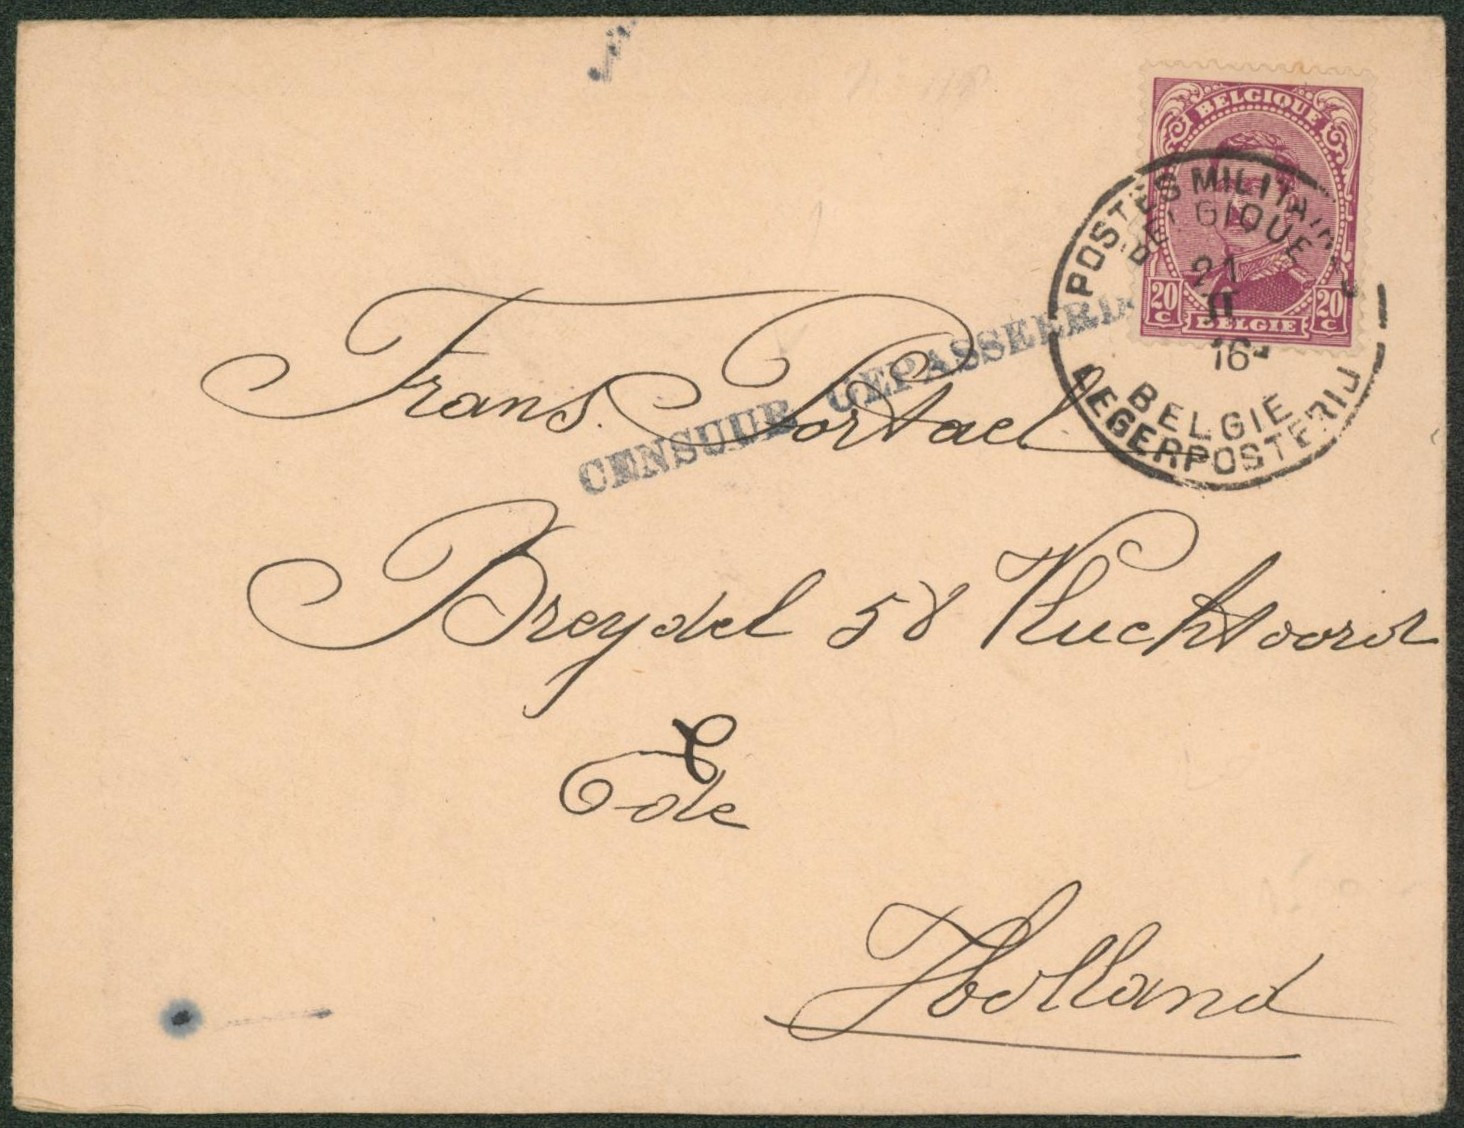 BELGIQUE
20 C
20 C
BELGIE
POSTES MILITAIRES
BELGIQUE
21
II
16
BELGIE
LEGERPOSTERIJ
CENSUUR GEPASSEERD
Frans Portael
Breydel 58 Vluchtoord
Ede
Holland